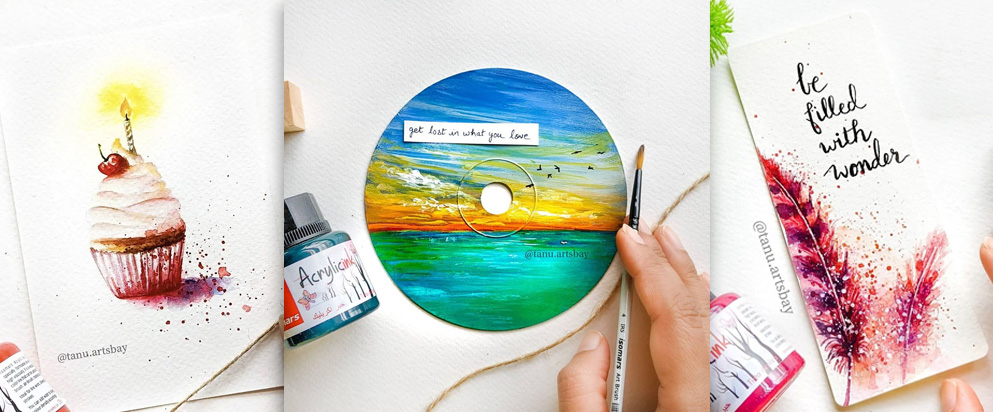 @tanu.artsbay
get lost in what you love
@tanu.artsbay
Acrylic ink
isomars Art Brush
be
filled
with
wonder
@tanu.artsbay